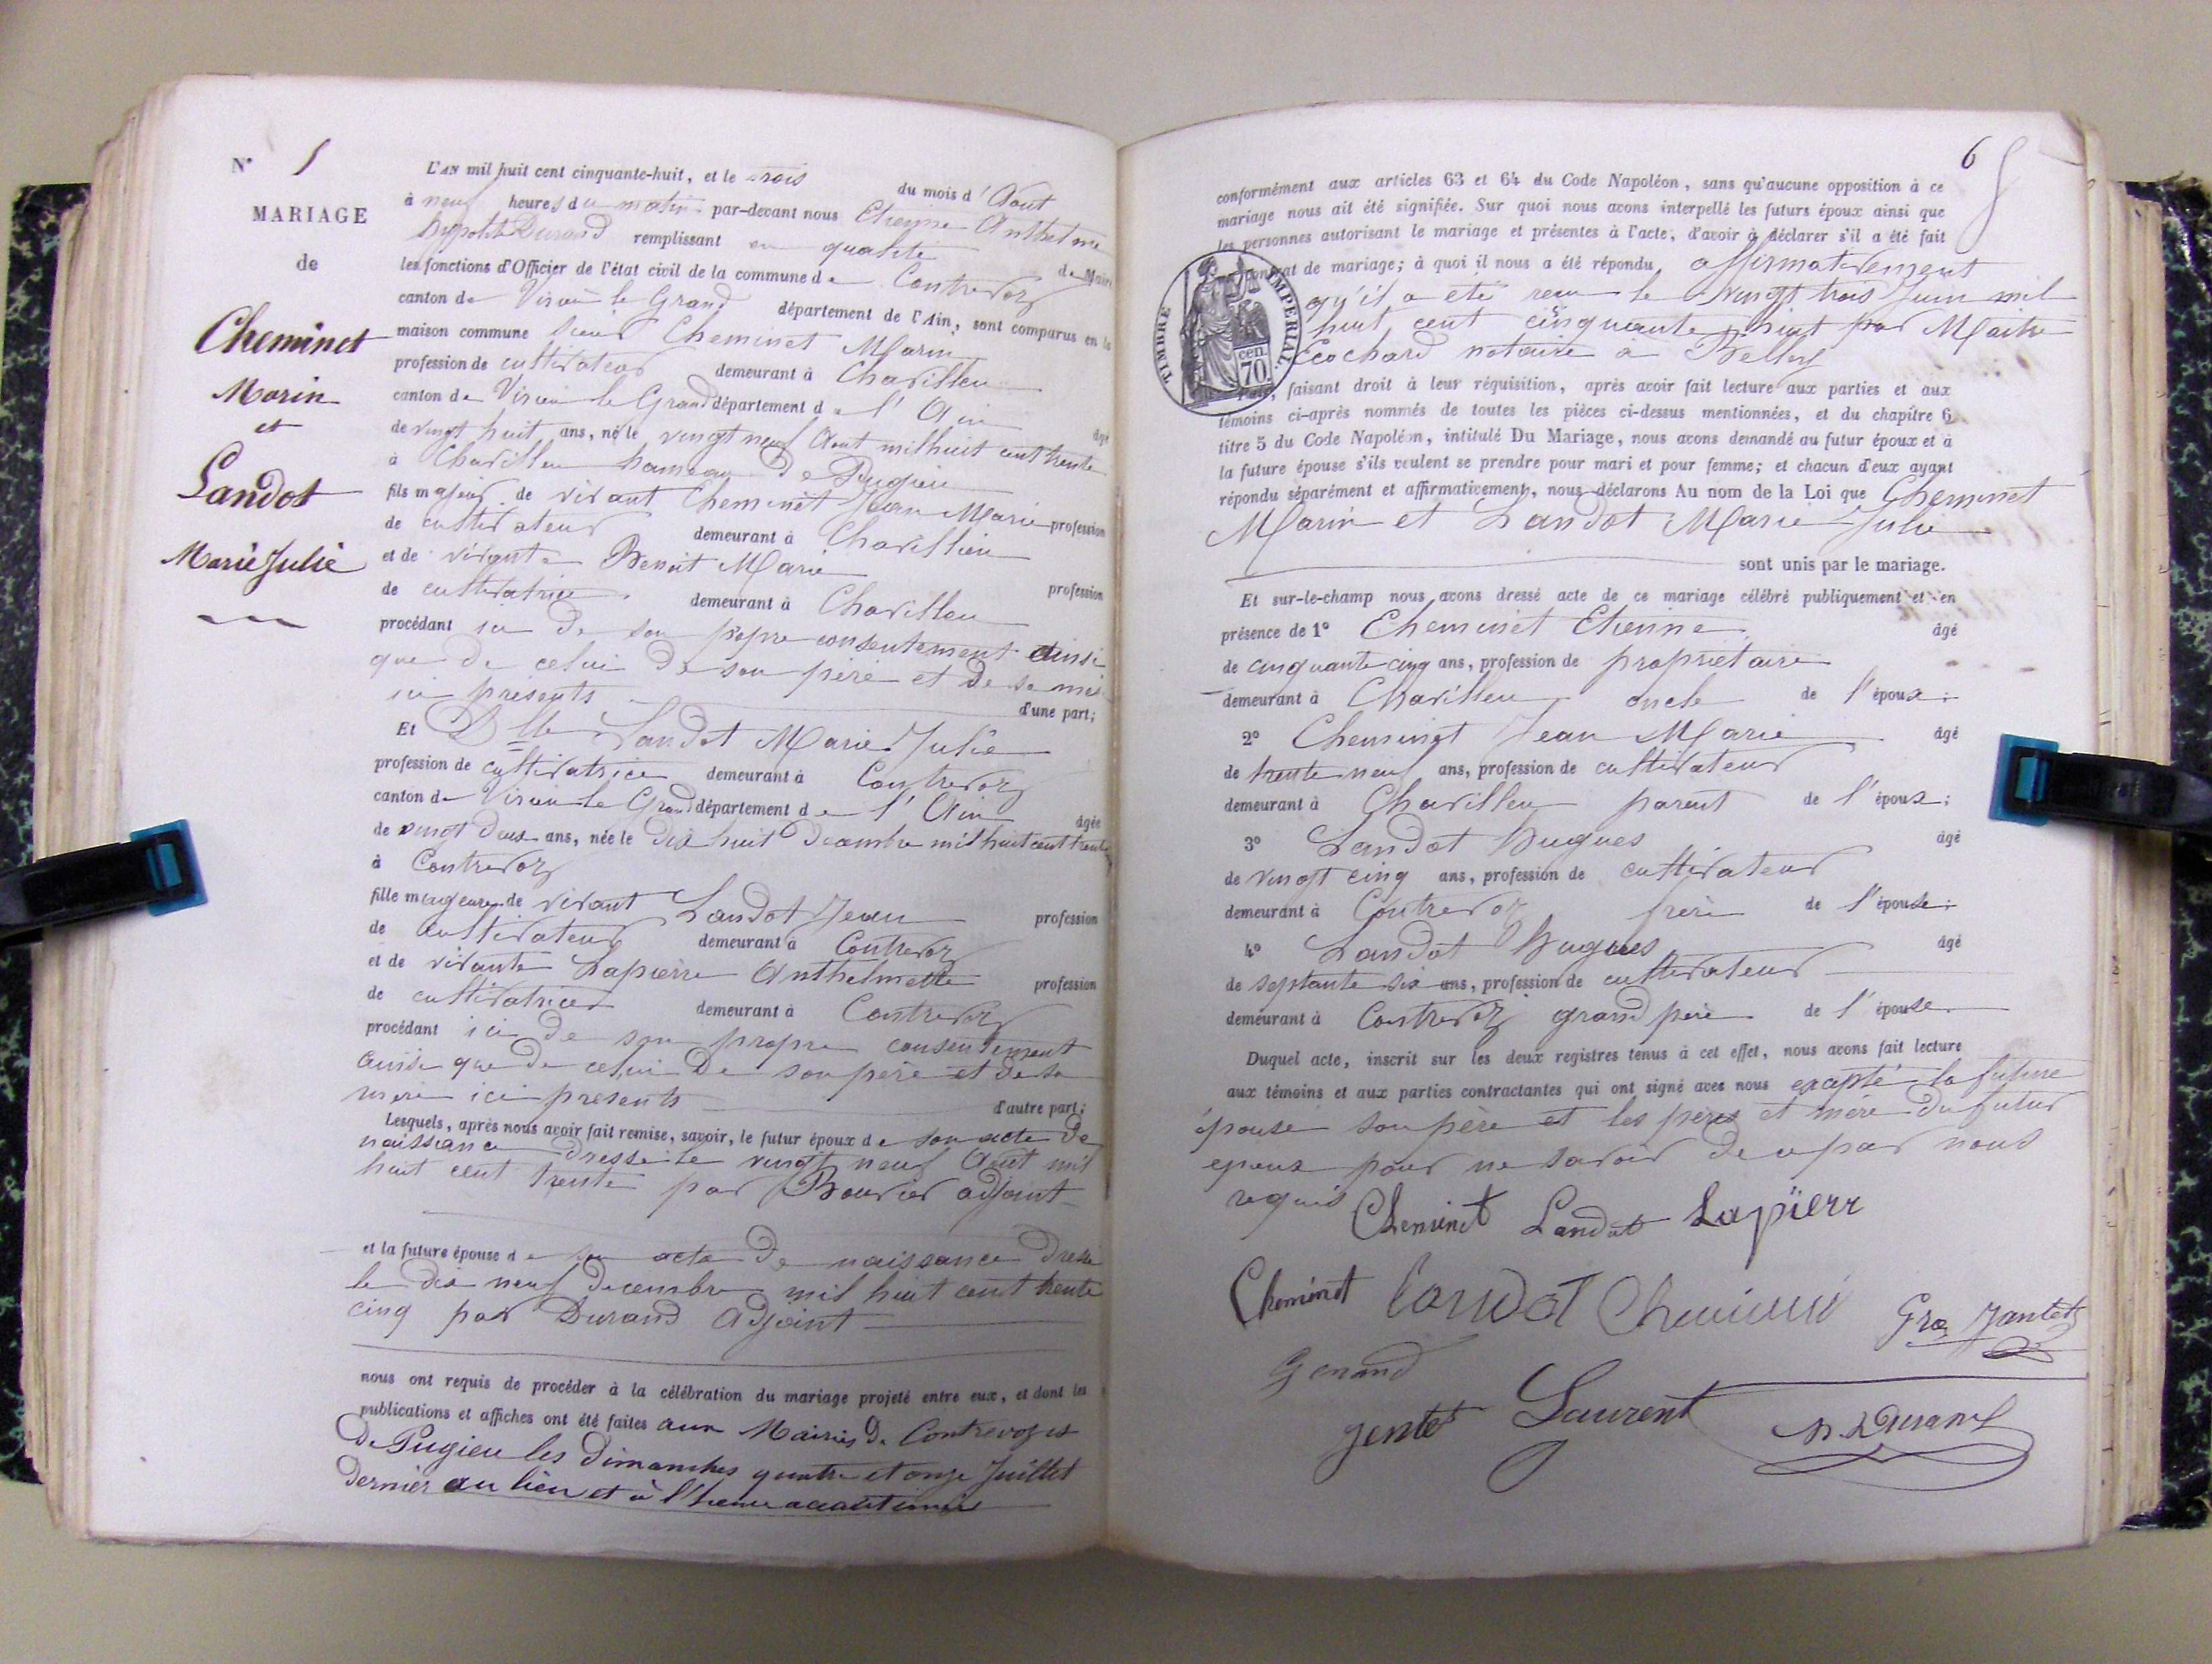 N° 5
MARIAGE
de
Cheminet
Marin
et
Landot
Marie Julie
L'AN mil huit cent cinquante-huit, et le trois du mois d'Aout
à neuf heures du matin par-devant nous Etienne Anthelme
hypolite Durand remplissant en qualité de Maire
les fonctions d'Officier de l'état civil de la commune de Contrevoz
canton de Virieu le Grand département de l'Ain, sont comparus en la
maison commune sieur Cheminet Marin
profession de cultivateur demeurant à Chavillieu
canton de Virieu le Grand département de l'Ain âgé
de vingt huit ans, né le vingt neuf Aout mil huit cent trente
à Chavillieu hameau de Pugieu
fils majeur de vivant Cheminet Jean Marie profession
de cultivateur demeurant à Chavillieu
et de vivante Benoit Marie profession
de cultivatrice demeurant à Chavillieu
procédant ici de son propre consentement ainsi
que de celui de son père et de sa mère
ici présents d'une part;
Et Dlle Landot Marie Julie
profession de cultivatrice demeurant à Contrevoz
canton de Virieu le Grand département de l'Ain âgée
de vingt deux ans, née le dix huit Decembre mil huit cent trente
à Contrevoz
fille majeure de vivant Landot Jean profession
de cultivateur demeurant à Contrevoz
et de vivante Lapierre Anthelmette profession
de cultivatrice demeurant à Contrevoz
procédant ici de son propre consentement
ainsi que de celui de son père et de sa
mère ici présents d'autre part;
Lesquels, après nous avoir fait remise, savoir, le futur époux de son acte de
naissance dressé le vingt neuf Aout mil
huit cent trente par Bouvier adjoint
et la future épouse de son acte de naissance dressé
le dix neuf Decembre mil huit cent trente
cinq par Durand Adjoint
nous ont requis de procéder à la célébration du mariage projeté entre eux, et dont les
publications et affiches ont été faites aux Mairies de Contrevoz et
de Pugieu les Dimanches quatre et onze Juillet
dernier au lieu et à l'heure accoutumés
6
conformément aux articles 63 et 64 du Code Napoléon, sans qu'aucune opposition à ce
mariage nous ait été signifiée. Sur quoi nous avons interpellé les futurs époux ainsi que
les personnes autorisant le mariage et présentes à l'acte, d'avoir à déclarer s'il a été fait
contrat de mariage; à quoi il nous a été répondu affirmativement
qu'il a été recu le vingt trois Juin mil
huit cent cinquante huit par Maitre
Cochard notaire à Belley
TIMBRE IMPERIAL.
cen.
70
, faisant droit à leur réquisition, après avoir fait lecture aux parties et aux
témoins ci-après nommés de toutes les pièces ci-dessus mentionnées, et du chapitre 6,
titre 5 du Code Napoléon, intitulé Du Mariage, nous avons demandé au futur époux et à
la future épouse s'ils veulent se prendre pour mari et pour femme; et chacun d'eux ayant
répondu séparément et affirmativement, nous déclarons Au nom de la Loi que Cheminet
Marin et Landot Marie Julie
sont unis par le mariage.
Et sur-le-champ nous avons dressé acte de ce mariage célébré publiquement et en
présence de 1° Cheminet Etienne âgé
de cinquante cinq ans, profession de propriétaire
demeurant à Chavillieu oncle de l'époux;
2° Cheminet Jean Marie âgé
de trente neuf ans, profession de cultivateur
demeurant à Chavillieu parent de l'époux;
3° Landot Hugues âgé
de vingt cinq ans, profession de cultivateur
demeurant à Contrevoz frère de l'épouse;
4° Landot Hugues âgé
de septante six ans, profession de cultivateur
demeurant à Contrevoz grand père de l'épouse.
Duquel acte, inscrit sur les deux registres tenus à cet effet, nous avons fait lecture
aux témoins et aux parties contractantes qui ont signé avec nous excepté la future
épouse son père et les père et mère du futur
epoux pour ne savoir de ce par nous
requis Cheminet Landot Lapierr
Cheminet Landot Gros Jantet
Genand
Jentet Laurent Durand